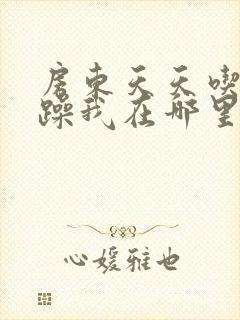 房东天天喫
躁我在那里
心媛雅也